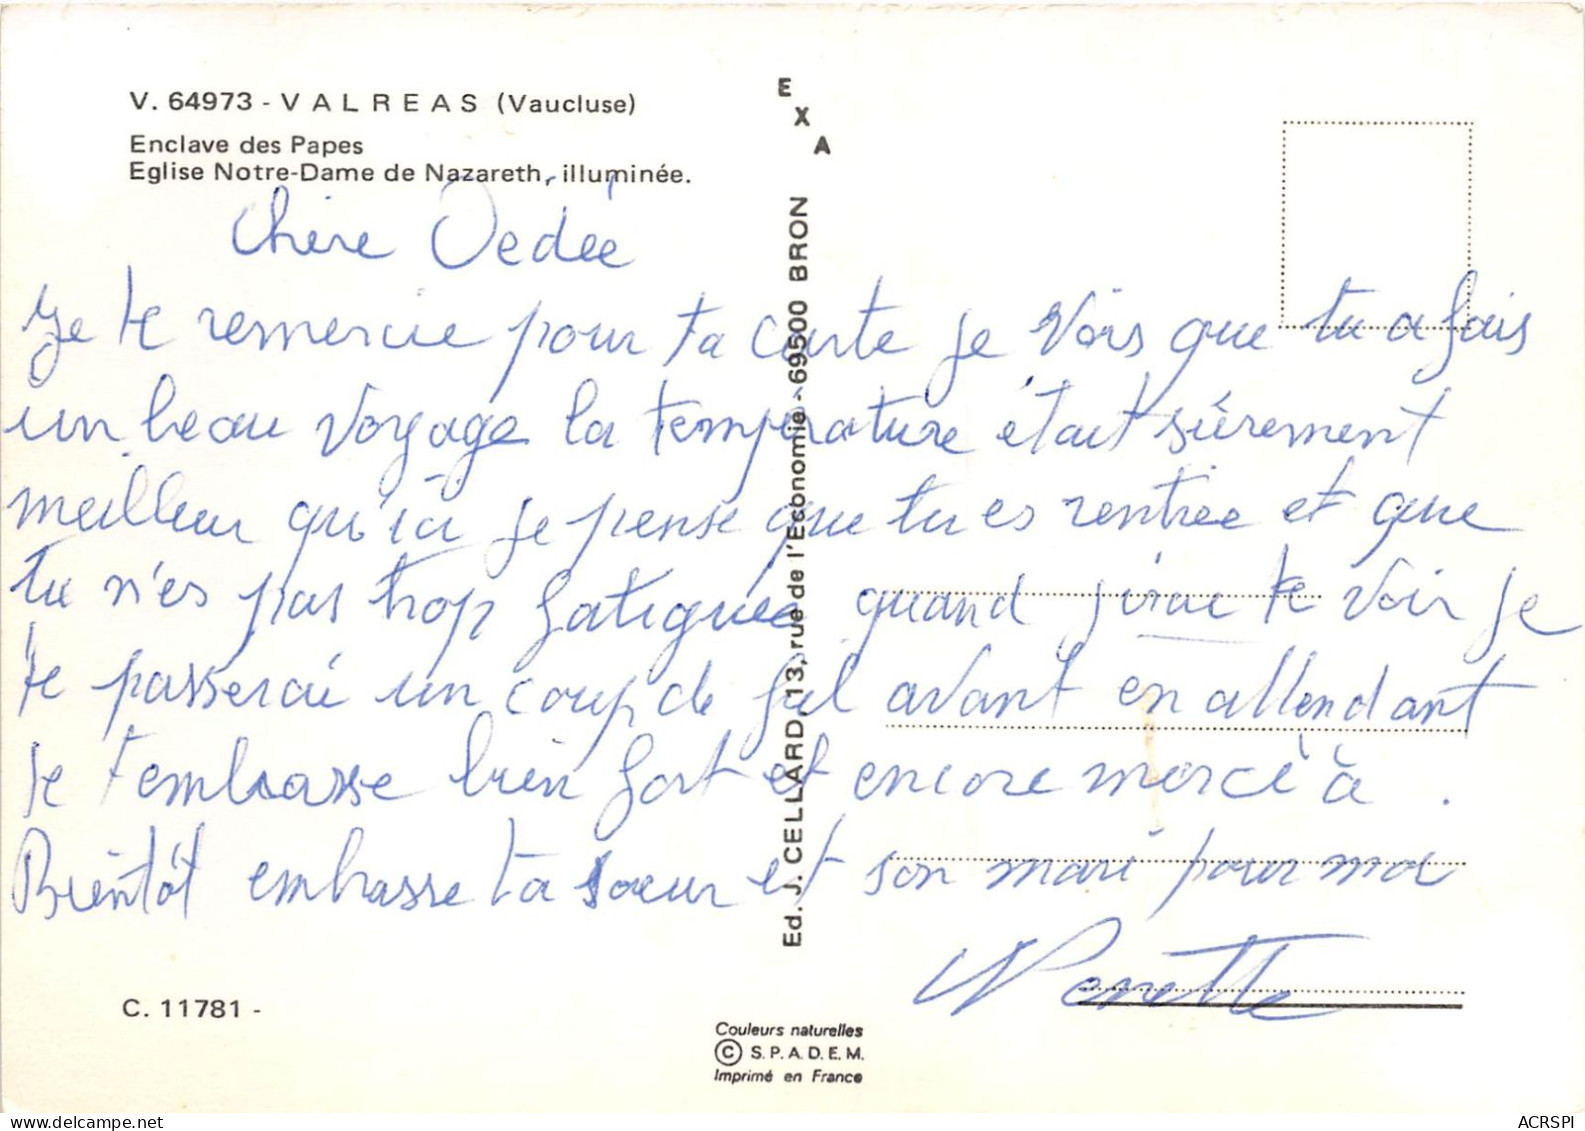 V. 64973 - VALREAS (Vaucluse)
Enclave des Papes
Eglise Notre-Dame de Nazareth, illuminée.
E X A
Chère Dedée
Je te remercie pour ta carte je vois que tu a fais
un beau voyage la température était sûrement
meilleur qu'ici je pense que tu es rentrée et que
tu n'es pas trop fatiguée quand j'irai te voir je
te passerai un coup de fil avant en attendant
je t'embrasse bien fort et encore merci à .
Bientôt embrasse ta soeur et son mari pour moi
Ed. J. CELLARD 13, rue de l'Economie - 69500 BRON
C. 11781 -
Couleurs naturelles
© S.P.A.D.E.M.
Imprimé en France
www.delcampe.net
ACRSPI